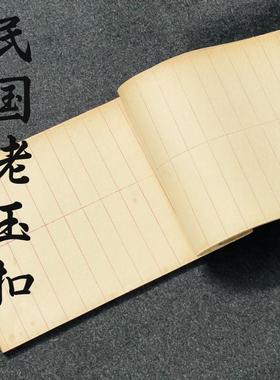 民国老玉扣